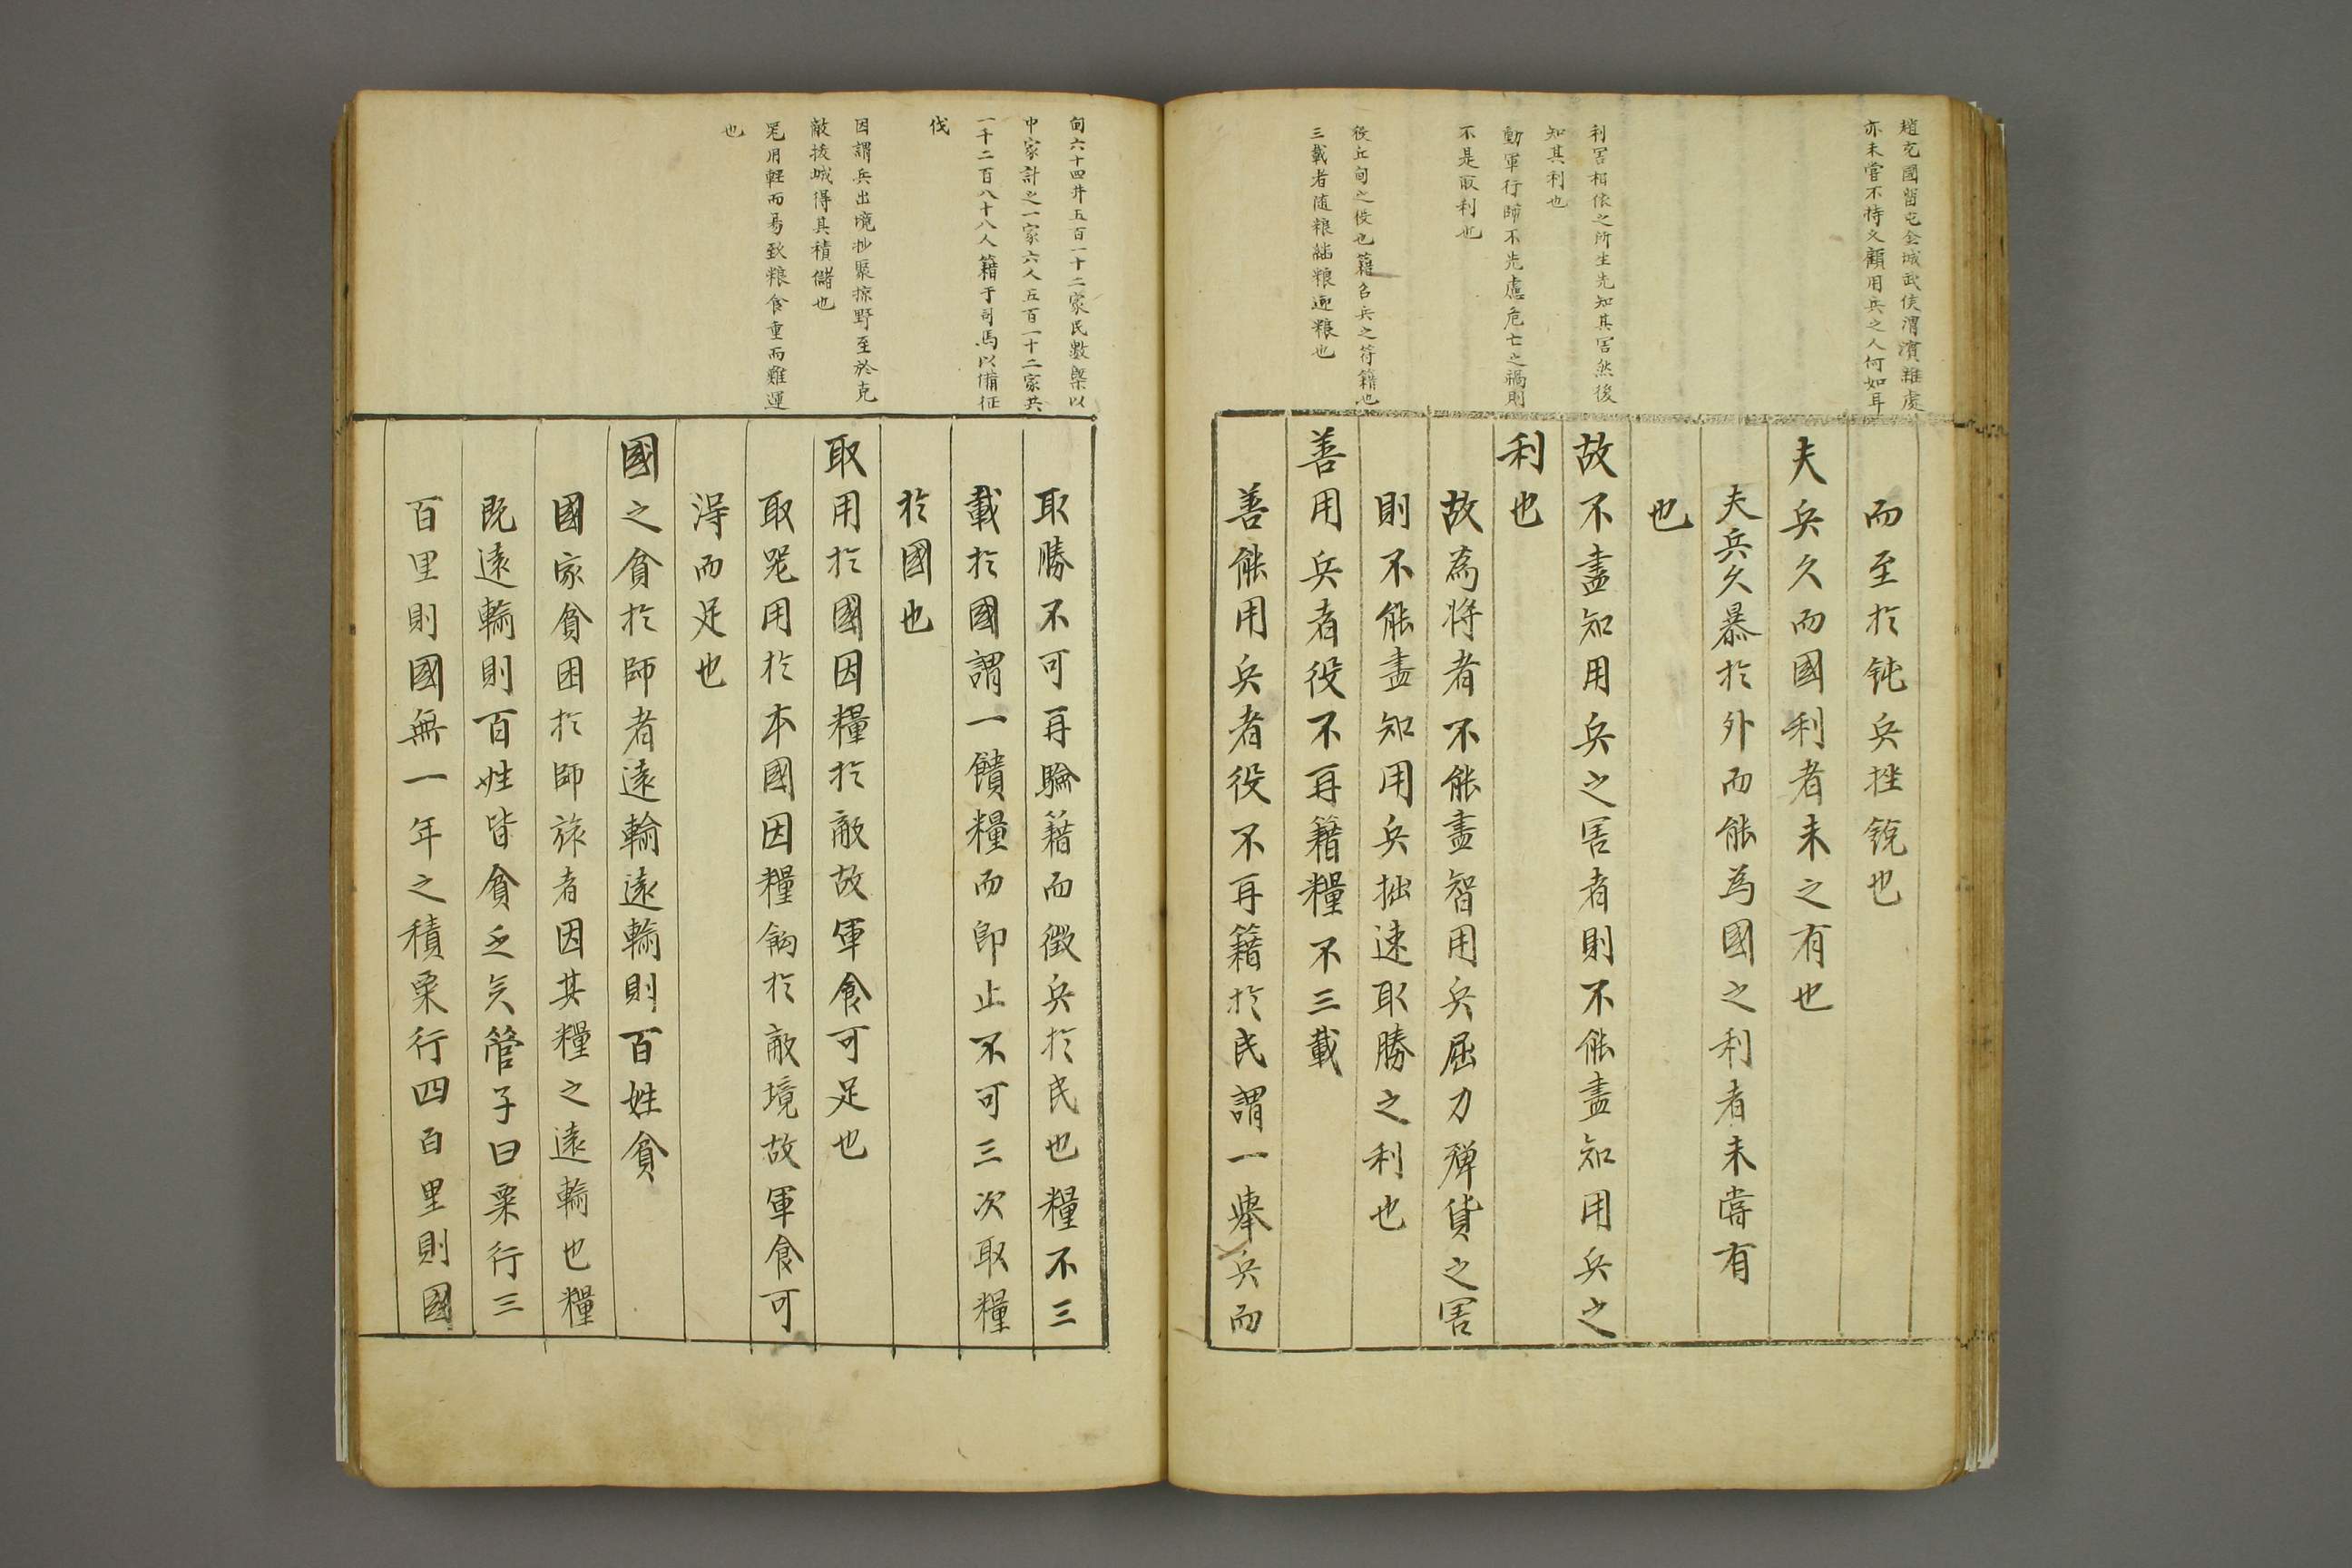 趙充國留屯金城武侯渭濱雜處
亦未嘗不持久顧用兵之人何如耳
利害相依之所生先知其害然後
知其利也
動軍行師不先慮危亡之禍則
不足取利也
役丘甸之役也籍名兵之符籍也
三載者隨粮繼粮迎粮也
而至於鈍兵挫銳也
夫兵久而國利者未之有也
夫兵久暴於外而能為國之利者未嘗有
也
故不盡知用兵之害者則不能盡知用兵之
利也
故為將者不能盡智用兵屈力殫貨之害
則不能盡知用兵拙速取勝之利也
善用兵者役不再籍糧不三載
善能用兵者役不再籍於民謂一舉兵而
甸六十四井五百一十二家民數槩以
中家計之一家六人五百一十二家共
一千二百八十八人籍于司馬以備征
伐
因謂兵出境抄聚掠野至於克
敵拔城得其積儲也
器用輕而易致粮食重而難運
也
取勝不可再驗籍而徵兵於民也糧不三
載於國謂一饋糧而即止不可三次取糧
於國也
取用於國因糧於敵故軍食可足也
取器用於本國因糧餉於敵境故軍食可
得而足也
國之貧於師者遠輸遠輸則百姓貧
國家貧困於師旅者因其糧之遠輸也糧
既遠輸則百姓皆貧乏矣管子曰粟行三
百里則國無一年之積粟行四百里則國